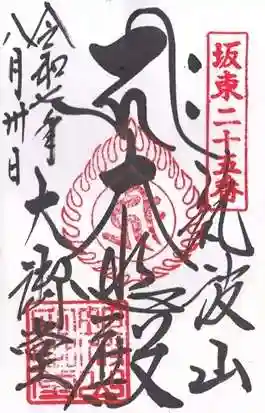 坂東二十五番
筑波山
大悲殿
大御堂
令和元年
八月卅日